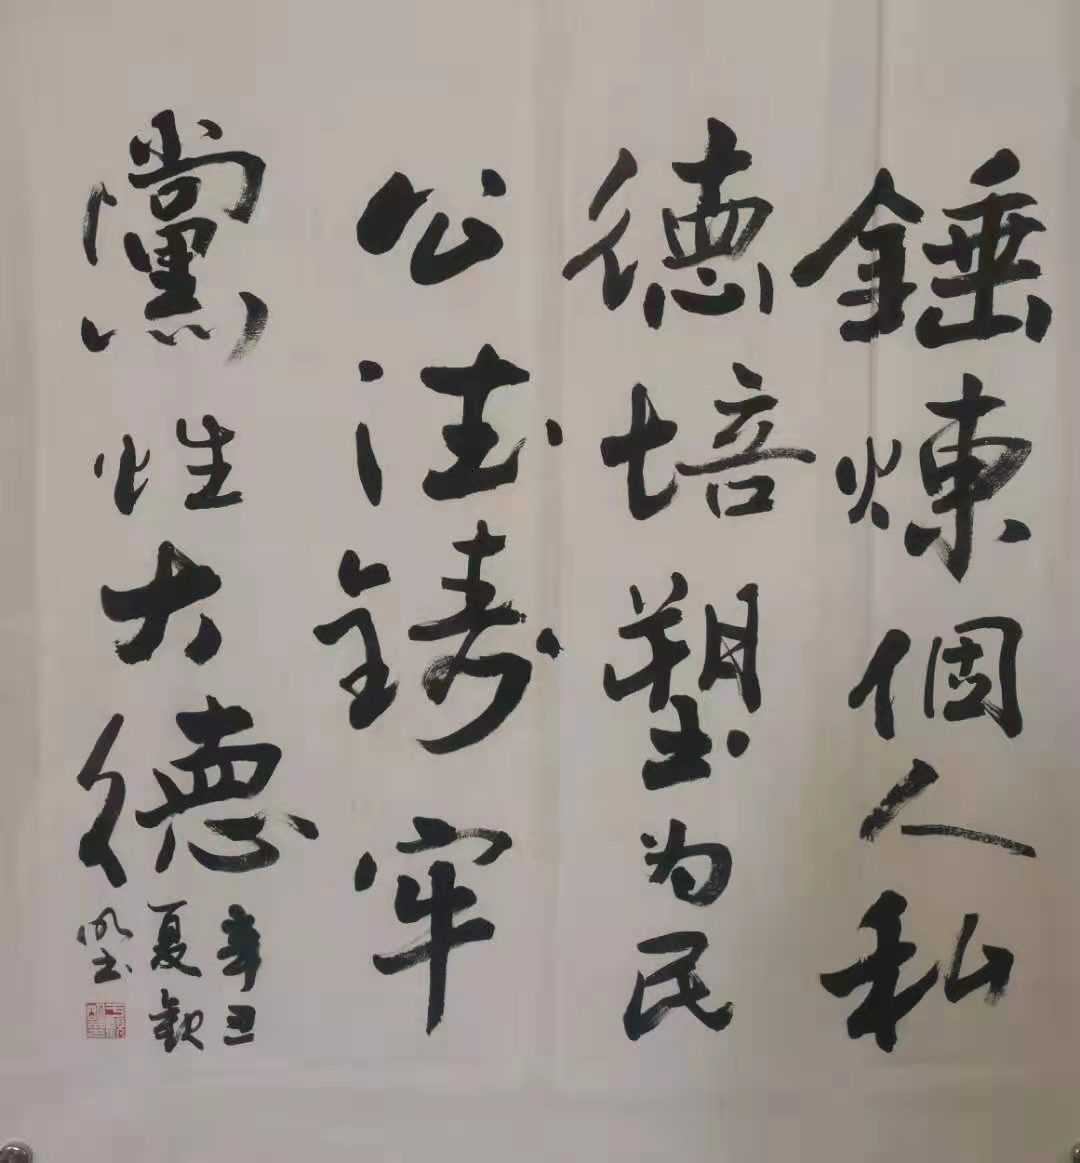 錘煉個人私
德培塑为民
公德鑄牢
黨性大德
辛丑
夏